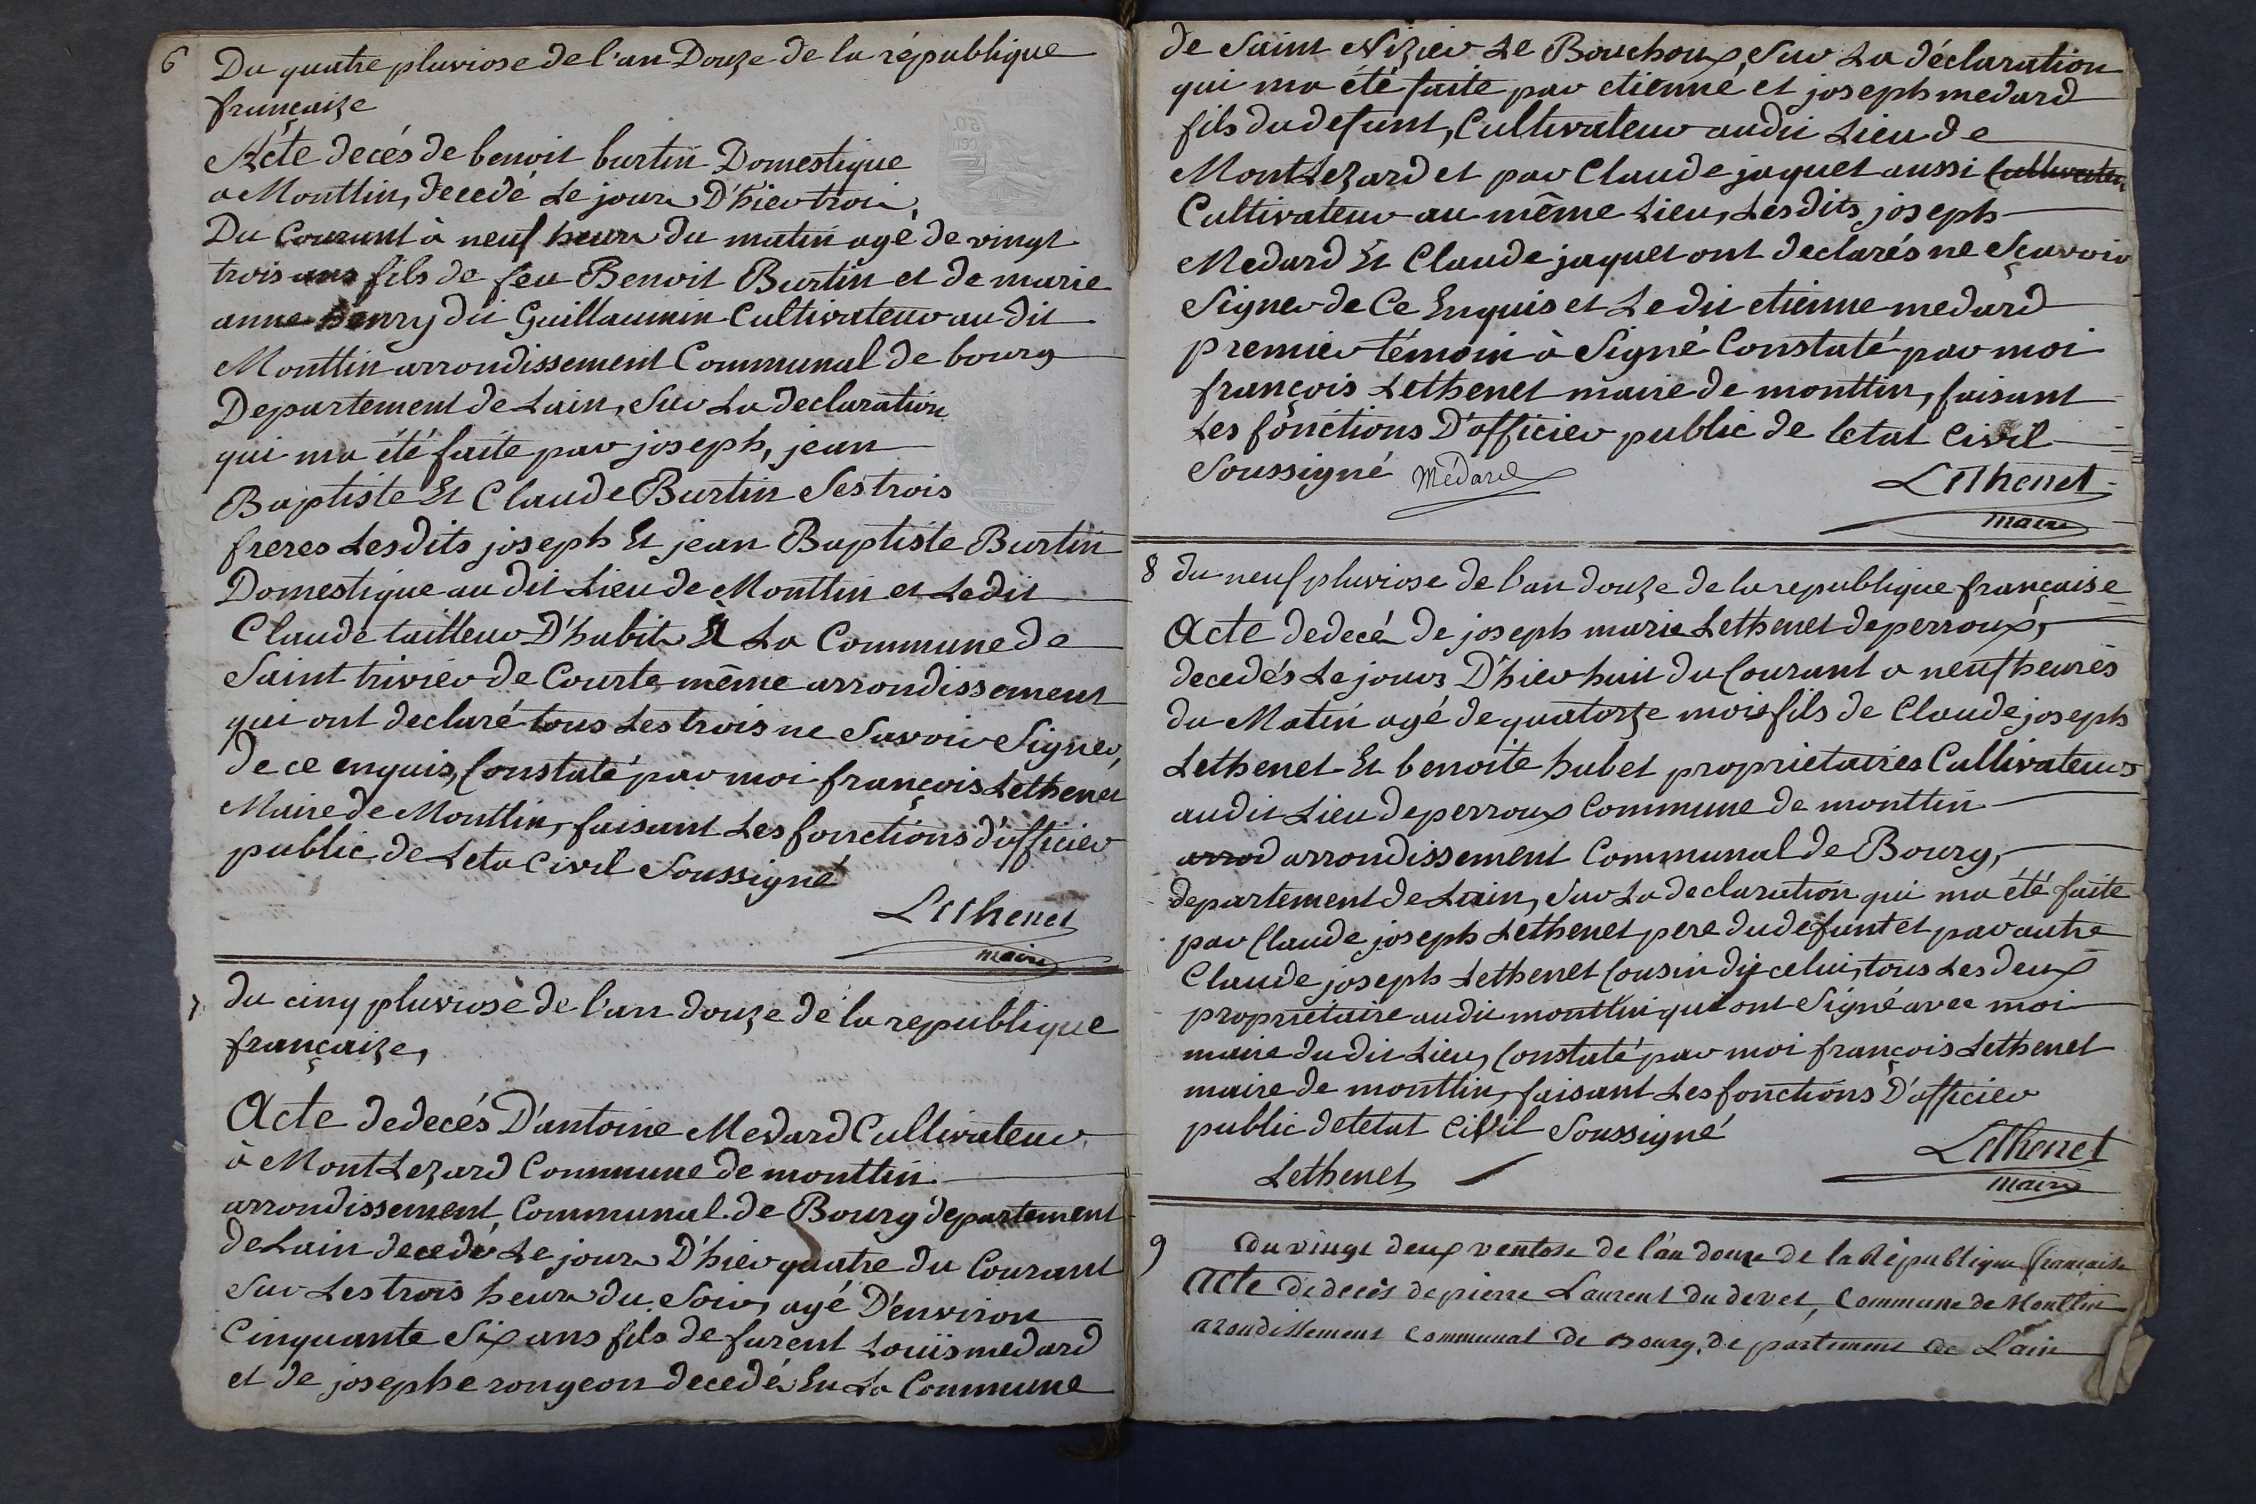 6
Du quatre pluviose de l'an Douze de la république
françaize
Acte decés de benoit burtin Domestique
a Montlin, decedé Le jour D'hier trois
Du Courant à neuf heure du matin agé de vingt
trois ans fils de feu Benoit Burtin et de marie
anne Henry dit Guillaumin Cultivateur au dit
Montlin arrondissement Communal de bourg
Departement de Lain, Sur La declaration
qui ma été faite par joseph, jean
Baptiste Et Claude Burtin Ses trois
freres Lesdits joseph Et jean Baptiste Burtin
Domestique au dit Lieu de Montlin et Ledit
Claude tailleur D'habits à La Commune de
Saint trivier de Courte même arrondissement
qui ont declaré tous Les trois ne Savoir Signer,
de ce enquis, Constaté par moi françois Lethenet
Maire de Montlin, faisant Les fonctions d'officier
public de Leta Civil Soussigné
Lethenet
maire
7
du cinq pluviose de l'an douze de la republique
françaize,
Acte de decés D'antoine Medard Cultivateur
à Mont Lezard Commune de montlin
arrondissement Communal de Bourg departement
de Lain decedé Le jour D'hier quatre du Courant
Sur Les trois heure du Soir, agé D'environ
Cinquante Six ans fils de furent Louis medard
et de josephe rongeon decedés En La Commune
de Saint Nizier Le Bouchoux, Sur La déclaration
qui ma été faite par etienne et joseph medard
fils du defunt, Cultivateur audit Lieu de
Mont Lezard et par Claude jaquet aussi Cultivateur
Cultivateur au même Lieu, Lesdits joseph
Medard Et Claude jaquet ont declarés ne Sçavoir
Signer de Ce Enquis et Le dit etienne medard
premier témoin à Signé Constaté par moi
françois Lethenet maire de montlin, faisant
Les fonctions D'officier public de letat Civil
Soussigné Médard
Lethenet
maire
8 du neuf pluviose de l'an douze de la republique française
Acte de decé de joseph marie Lethenet de perroux,
decedés Le jours D'hier huit du Courant a neuf heures
du Matin agé de quatorze mois fils de Claude joseph
Lethenet Et benoite hubet proprietaires Cultivateurs
audit Lieu de perroux Commune de montlin
arrod arrondissement Communal de Bourg,
departement de Lain, Sur La declaration qui ma été faite
par Claude joseph Lethenet pere du defunt et par autre
Claude joseph Lethenet Cousin dy celui, tous Les deux
propriétaire audit montlin qui ont Signé avec moi
maire du dit Lieu, Constaté par moi françois Lethenet
maire de montlin, faisant Les fonctions D'officier
public de letat Civil Soussigné
Lethenet
Lethenet
maire
9
du vingt deux ventose de l'an douze de la République française
Acte de decès de pierre Laurent du devet, Commune de Montlin
arondissement Communal de Bourg, departement de L'ain